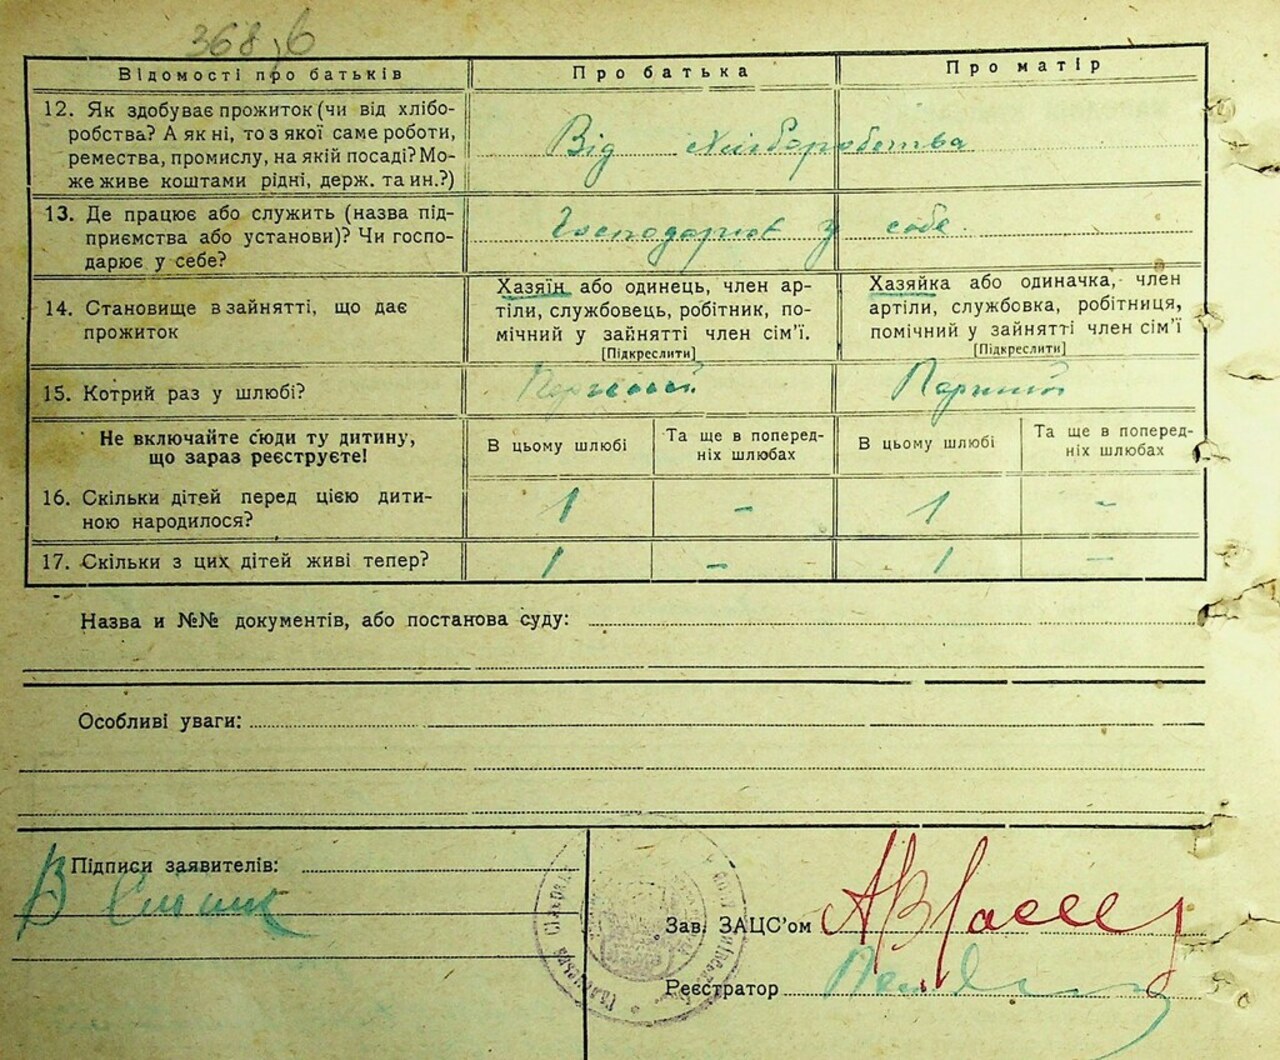 368
Відомості про батьків
Про батька
Про матір
12. Як здобуває прожиток (чи від хлібо-
робства? А як ні, то з якої саме роботи,
ремества, промислу, на якій посаді? Мо-
же живе коштами рідні, держ. та ин.?)
Від хліборобства
13. Де працює або служить (назва під-
приємства або установи)? Чи госпо-
дарює у себе?
Господарює у себе
14. Становище в зайнятті, що дає
прожиток
Хазяїн або одинець, член ар-
тіли, службовець, робітник, по-
мічний у зайнятті член сім'ї.
[Підкреслити]
Хазяйка або одиначка, член
артіли, службовка, робітниця,
помічний у зайнятті член сім'ї
[Підкреслити]
15. Котрий раз у шлюбі?
Перший
Перший
Не включайте сюди ту дитину,
що зараз реєструєте!
В цьому шлюбі
Та ще в поперед-
ніх шлюбах
В цьому шлюбі
Та ще в поперед-
ніх шлюбах
16. Скільки дітей перед цією дити-
ною народилося?
1 - 1 -
17. Скільки з цих дітей живі тепер?
1 - 1 -
Назва и №№ документів, або постанова суду:
Особливі уваги:
Підписи заявителів:
Зав. ЗАЦС'ом
Реєстратор